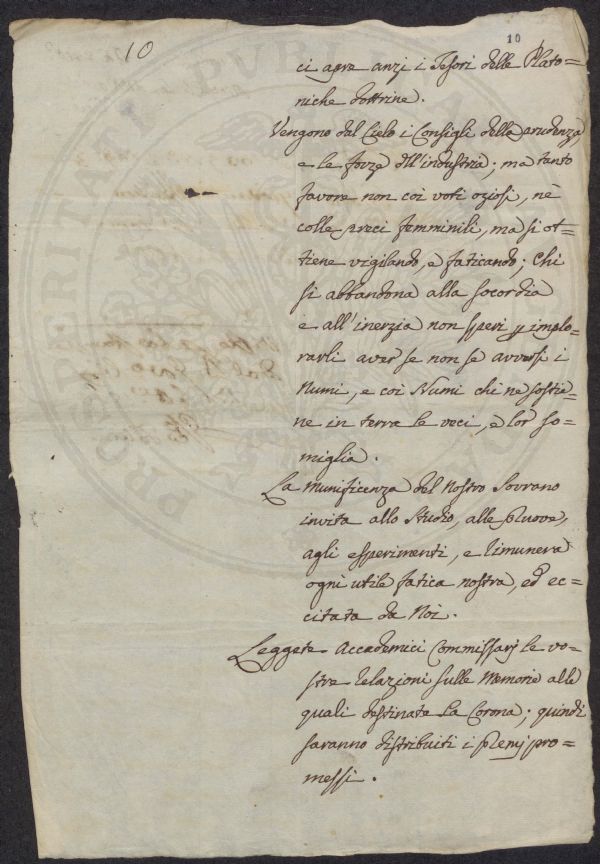 10
10
ci apre anzi i Tesori delle Plato=
niche dottrine.
Vengono dal Cielo i Consigli della prudenza,
e le forze dell'industria; ma tanto
favore non coi voti oziosi, nè
colle preci femminili, ma si ot=
tiene vigilando, e faticando; Chi
si abbandona alla socordia
e all'inerzia non speri p implo=
rarli aver se non se avversi i
Numi, e coi Numi chi ne sostie=
ne in terra le veci, e lor so=
miglia.
La Munificenza del Nostro Sovrano
invita allo Studio, alle pruove,
agli esperimenti, e rimunera
ogni utile fatica nostra, ed ec=
citata da Noi.
Leggete Accademici Commissarj le vo=
stre relazioni sulle Memorie alle
quali destinate La Corona; quindi
saranno distribuiti i premj pro=
messi.